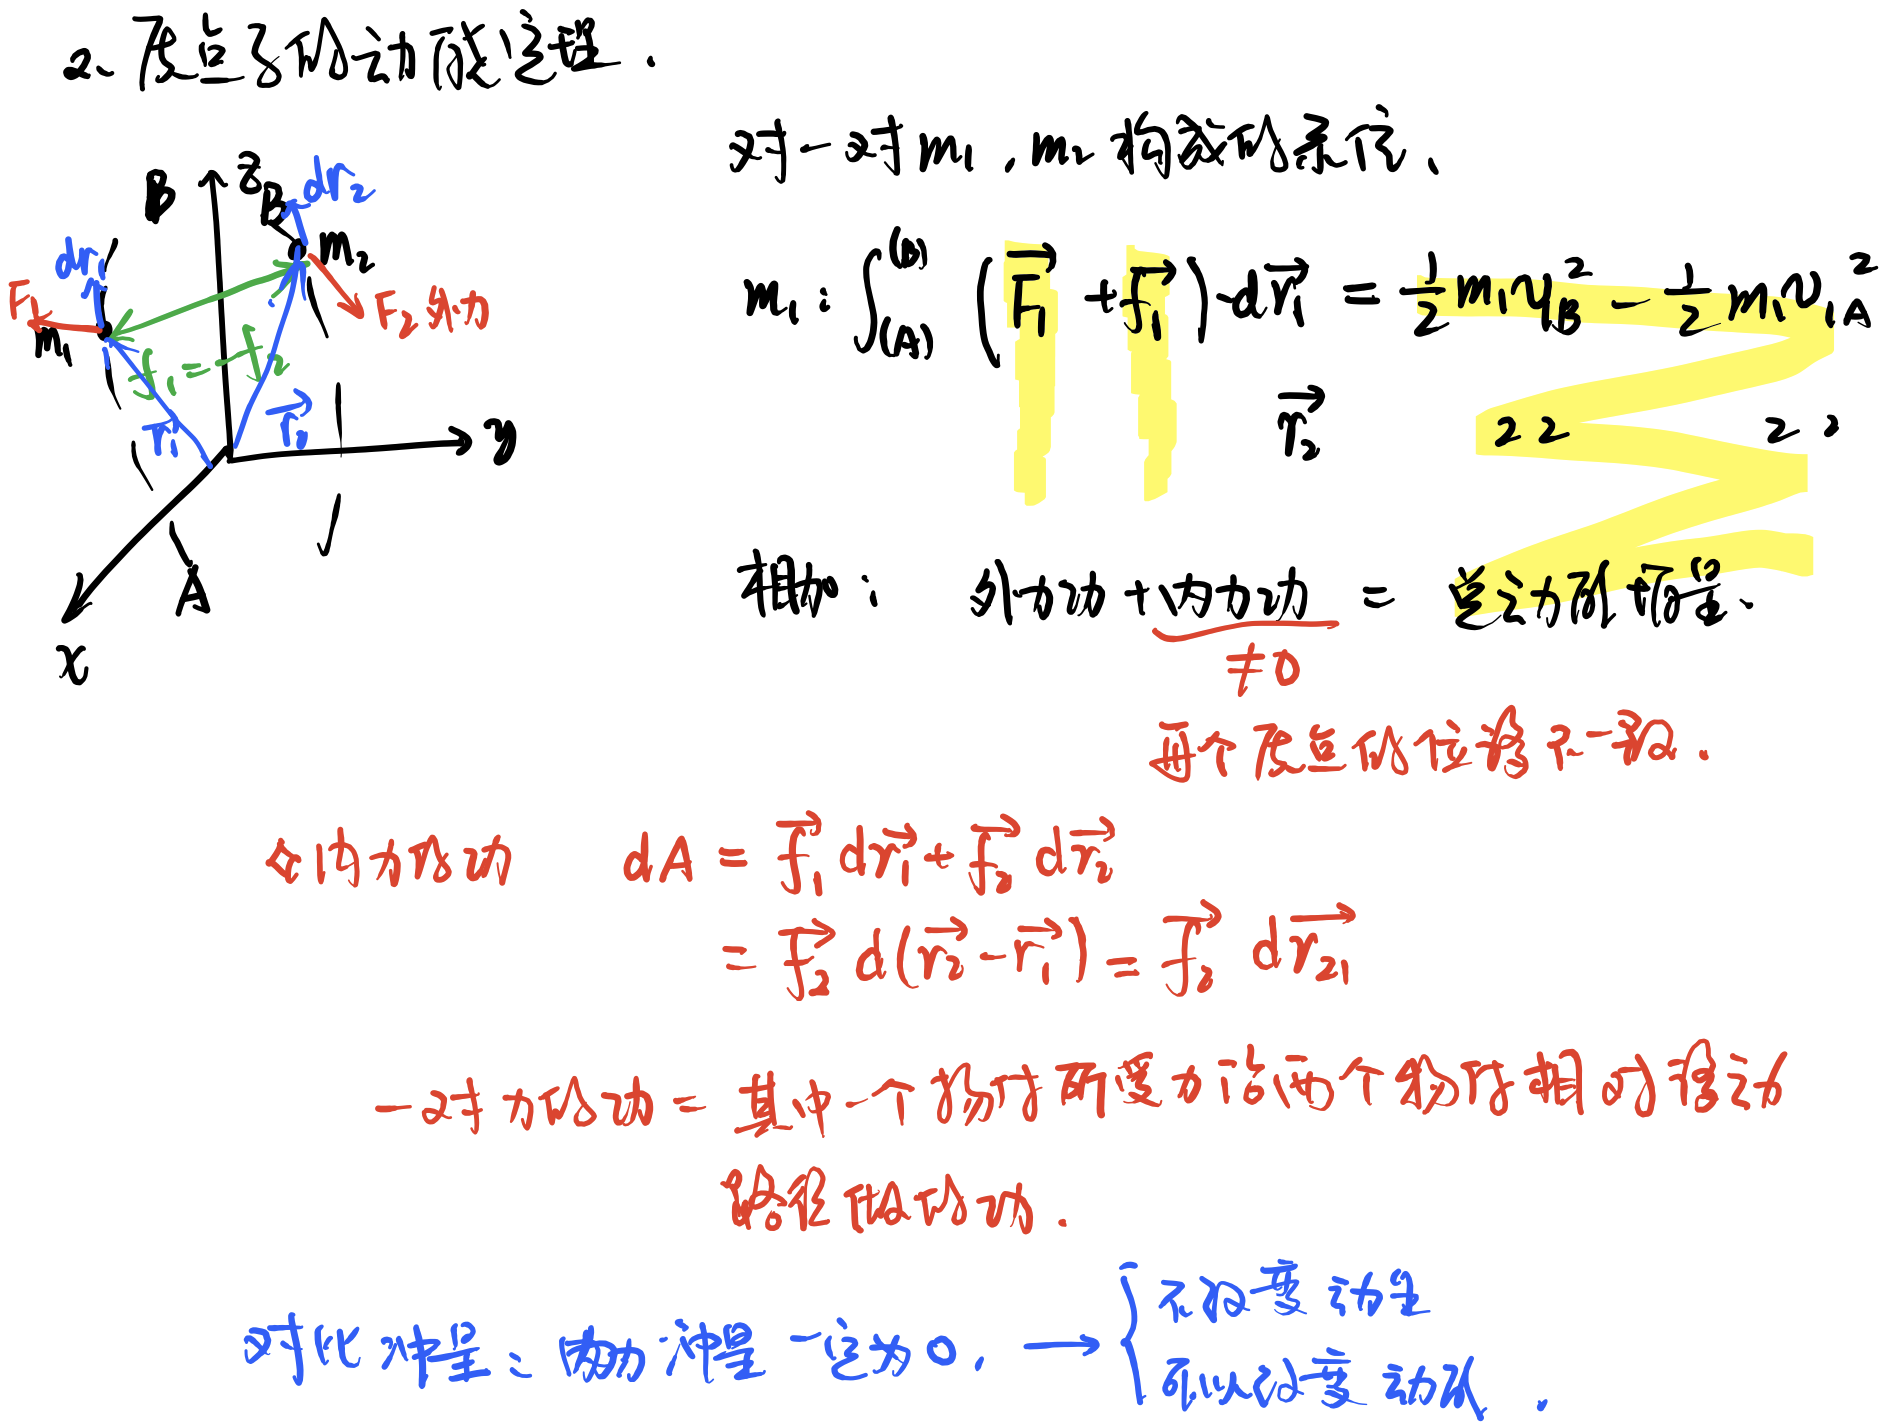 2、质点系的动能定理.
对一对 m₁, m₂ 构成的系统、
B z B dr₂
m₂
dr₁
F₁
m₁
F₂ 外力
f₁ = -f₂
r₁ r₂
y
A
x
m₁: ∫₍A₎⁽ᴮ⁾ (F₁⃗ + f₁⃗)·dr₁⃗ = ½ m₁v₁B² - ½ m₁v₁A²
r₂⃗ 2 2 2 2
相加: 外力功 + 内力功 = 总动能增量.
≠0
两个质点的位移不一致.
内力的功 dA = f₁⃗ dr₁⃗ + f₂⃗ dr₂⃗
= f₂⃗ d(r₂⃗ - r₁⃗) = f₂⃗ dr₂₁⃗
一对力的功 = 其中一个物体所受力沿两个物体相对移动
路径做的功.
对比冲量: 内力冲量一定为0. → { 不改变动量
可以改变动能.